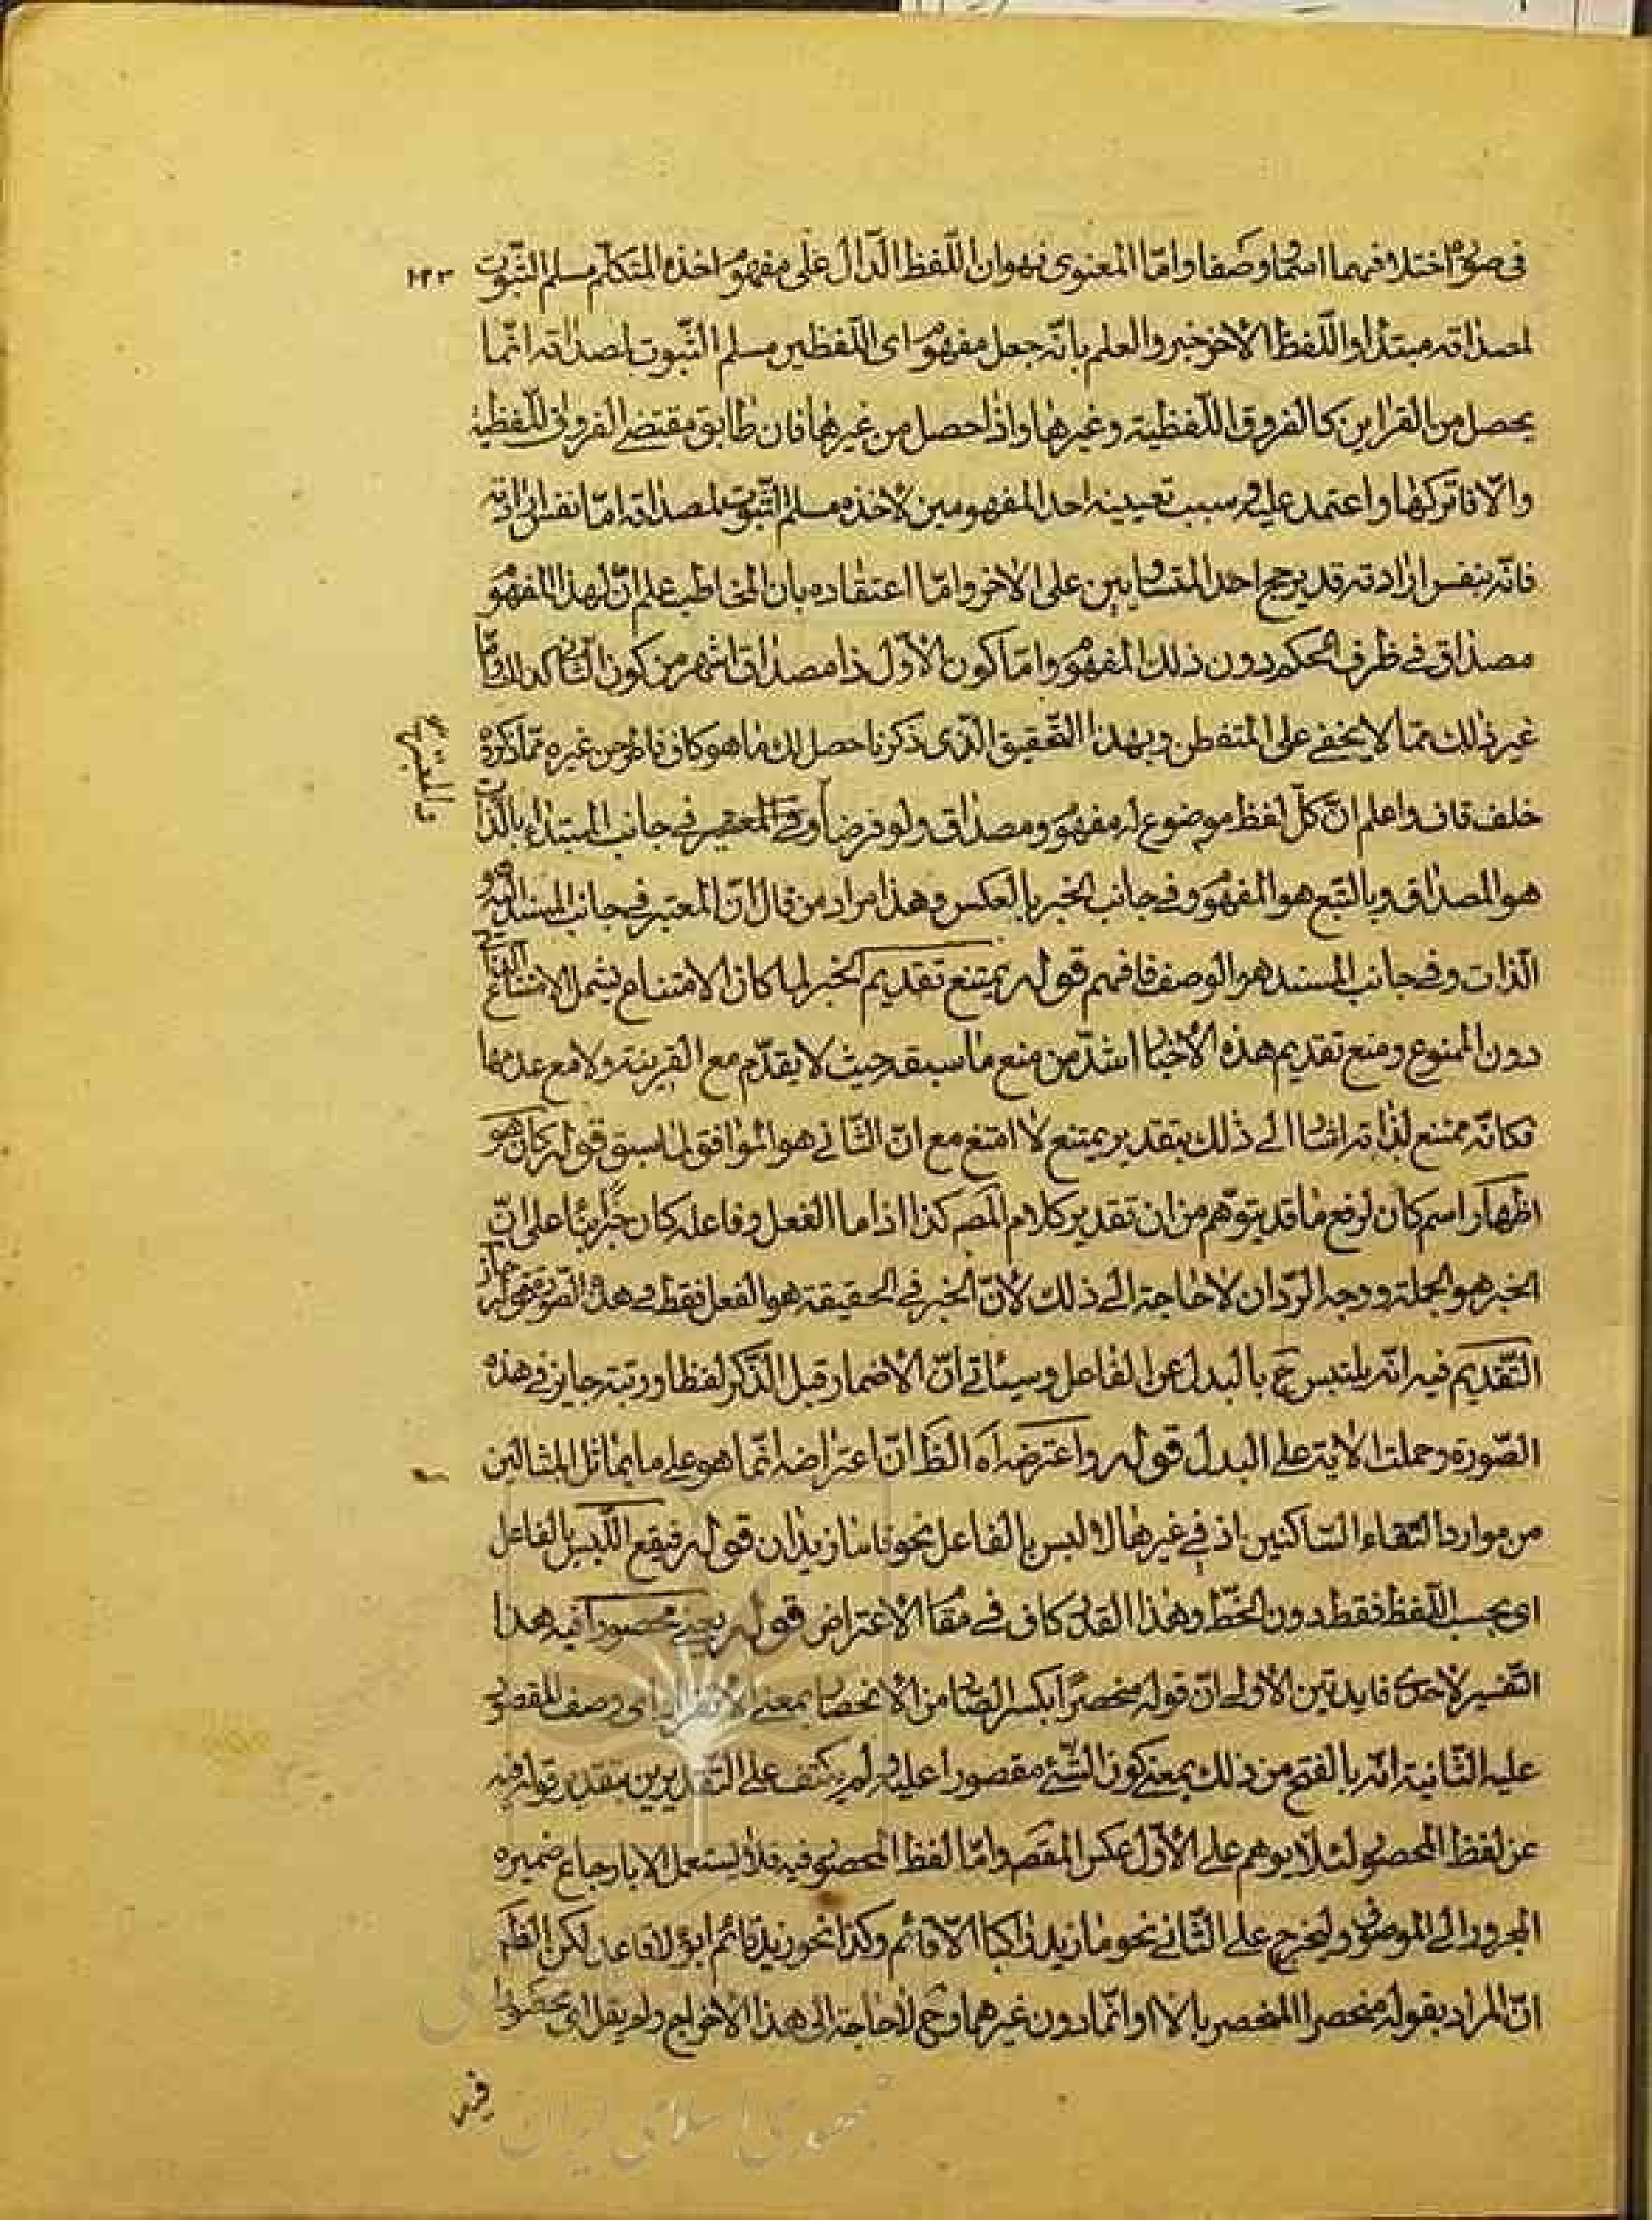 في صورة اختلافهما اسما وصفا واما المعنوي فهو ان اللّفظ الدّالّ على مفهوم اخذه المتكلّم مسلم الثّبوت
۱۲۳
لمصداقه مبتدا واللّفظ الاخر خبر والعلم بانّه جعل مفهوم اى اللّفظين مسلم الثّبوت لمصداقه انّما
يحصل من القراين كالفروق اللّفظية وغيرها واذا حصل من غيرها فان طابق مقتضى الفروق اللّفظية
والّا فاتركها واعتمد عليه وسبب تعيينه احد المفهومين لاخذه مسلم الثّبوت لمصداقه امّا نفس ارادته
فانّه بنفس ارادته قد يرجح احد المتساويين على الاخر وامّا اعتقاده بان المخاطب علم انّ لهذا المفهوم
مصداق في ظرف الحكم دون ذلك المفهوم وامّا كون الاوّل ذا مصداق اشهر من كون الثّاني كذلك وامّا
غير ذلك ممّا لا يخفى على المتفطن وبهذا التّحقيق الّذى ذكرنا حصل لك ما هو كاف من غيره ممّا ذكره
خلف قاف واعلم انّ كلّ لفظ موضوع له مفهوم ومصداق ولو فرضا والمعتبر في جانب المبتداء بالذّات
هو المصداق وبالتّبع هو المفهوم وفي جانب الخبر بالعكس وهذا مراد من قال انّ المعتبر في جانب المسند اليه هو
الذّات وفي جانب المسند هو الوصف فافهم قوله يمتنع تقديم الخبر لما كان الامتناع يشمل الامتناع
دون الممنوع ومنع تقديم هذه الاخبار اشدّ من منع ما سبقه حيث لا يقدّم مع القرينة ولا مع عدمها
فكانّه ممتنع لذاته اشار الى ذلك بتقدير يمتنع لا امتنع مع انّ الثّاني هو الموافق لما سبق قوله كان هو
اظهار اسم كان لرفع ما قد يتوهّم من ان تقدير كلام المص كذا اذا ما الفعل وفاعله كان خبرا بناء على انّ
الخبر هو الجملة ووجه الرّد ان لا حاجة الى ذلك لانّ الخبر في الحقيقة هو الفعل فقط في هذه الصّورة قوله
التّقديم فيه انّه يلتبس ح بالبدل عن الفاعل وسياتي انّ الاضمار قبل الذّكر لفظا ورتبة جايز في هذه
الصّورة وحملت الاية على البدل قوله واعترضه اه الظّ انّ اعتراضه انّما هو على ما يماثل المثالين
من موارد التقاء السّاكنين اذ في غيرها لا لبس بالفاعل نحو قاما زيدان قوله فيقع اللّبس بالفاعل
اى بحسب اللّفظ فقط دون الخطّ وهذا القدر كاف في مقام الاعتراض قوله يعني محصورا فيه هذا
التّفسير لاحدى فايدتين الاولى انّ قوله منحصرا بكسر الصّاد من الانحصار بمعنى الانفراد اى وصف المقصور
عليه الثّانية انّه بالفتح من ذلك بمعنى كون الشّئ مقصورا عليه ولم يكتف على التّقديرين بتقدير قوله فيه
عن لفظ المحصور لئلّا يوهم على الاوّل عكس المقصود وامّا لفظ المحصور فيه فلا يستعمل الا بارجاع ضميره
المجرور الى الموصوف وليخرج على الثّاني نحو ما زيد راكبا الّا قائم وكذا نحو زيد قائم ابوه لا قاعد لكن الظّ
انّ المراد بقوله منحصرا المنحصر بالّا او انّما دون غيرهما وح لا حاجة الى هذا الاخراج ولم يقل اى محصورا
فيه
جمهوری اسلامی ایران